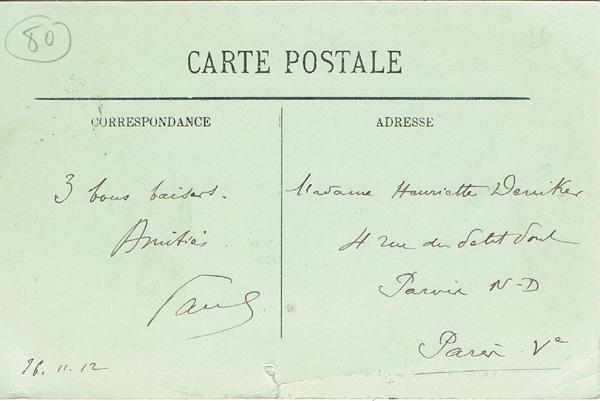 80
CARTE POSTALE
CORRESPONDANCE
ADRESSE
3 bons baisers.
Amitiés
Paul
Madame Henriette Deniker
4 rue du Petit Pont
Parvis N-D
Paris Ve
26.11.12